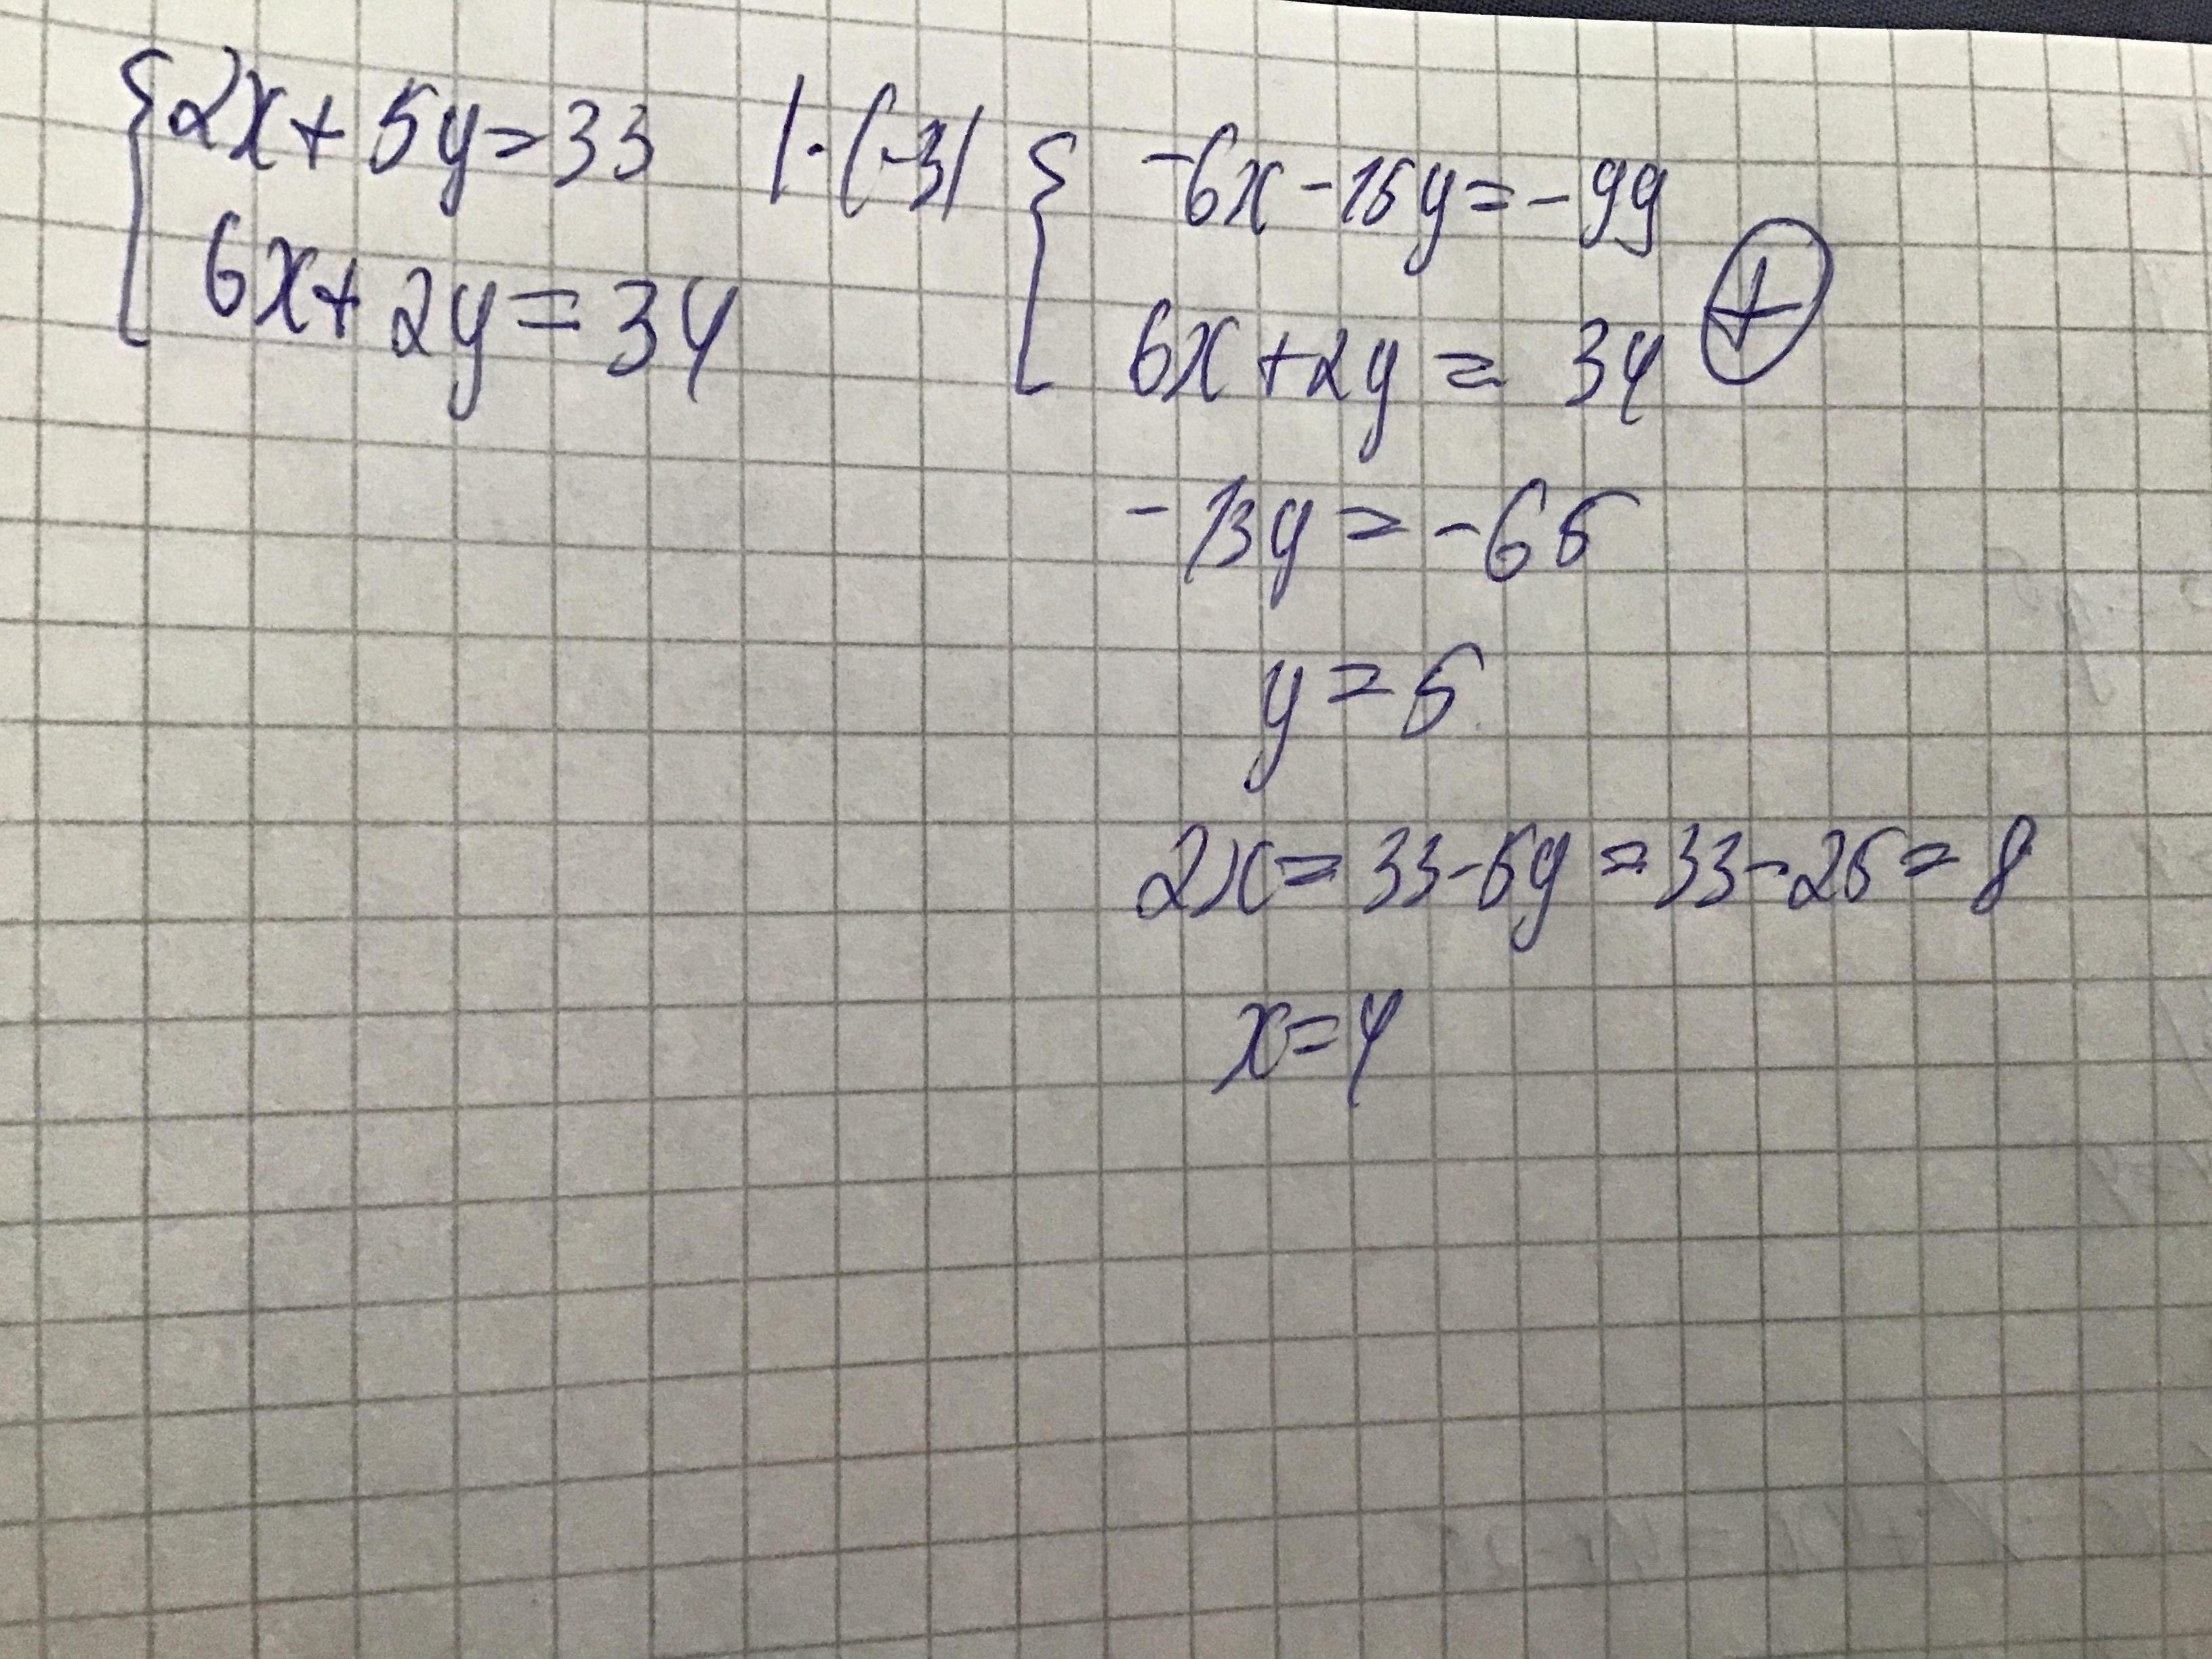 {2x+5y=33 |·(-3)
6x+2y=34
{-6x-15y=-99
6x+2y=34 ⊕
-13y=-65
y=5
2x=33-5y=33-25=8
x=4